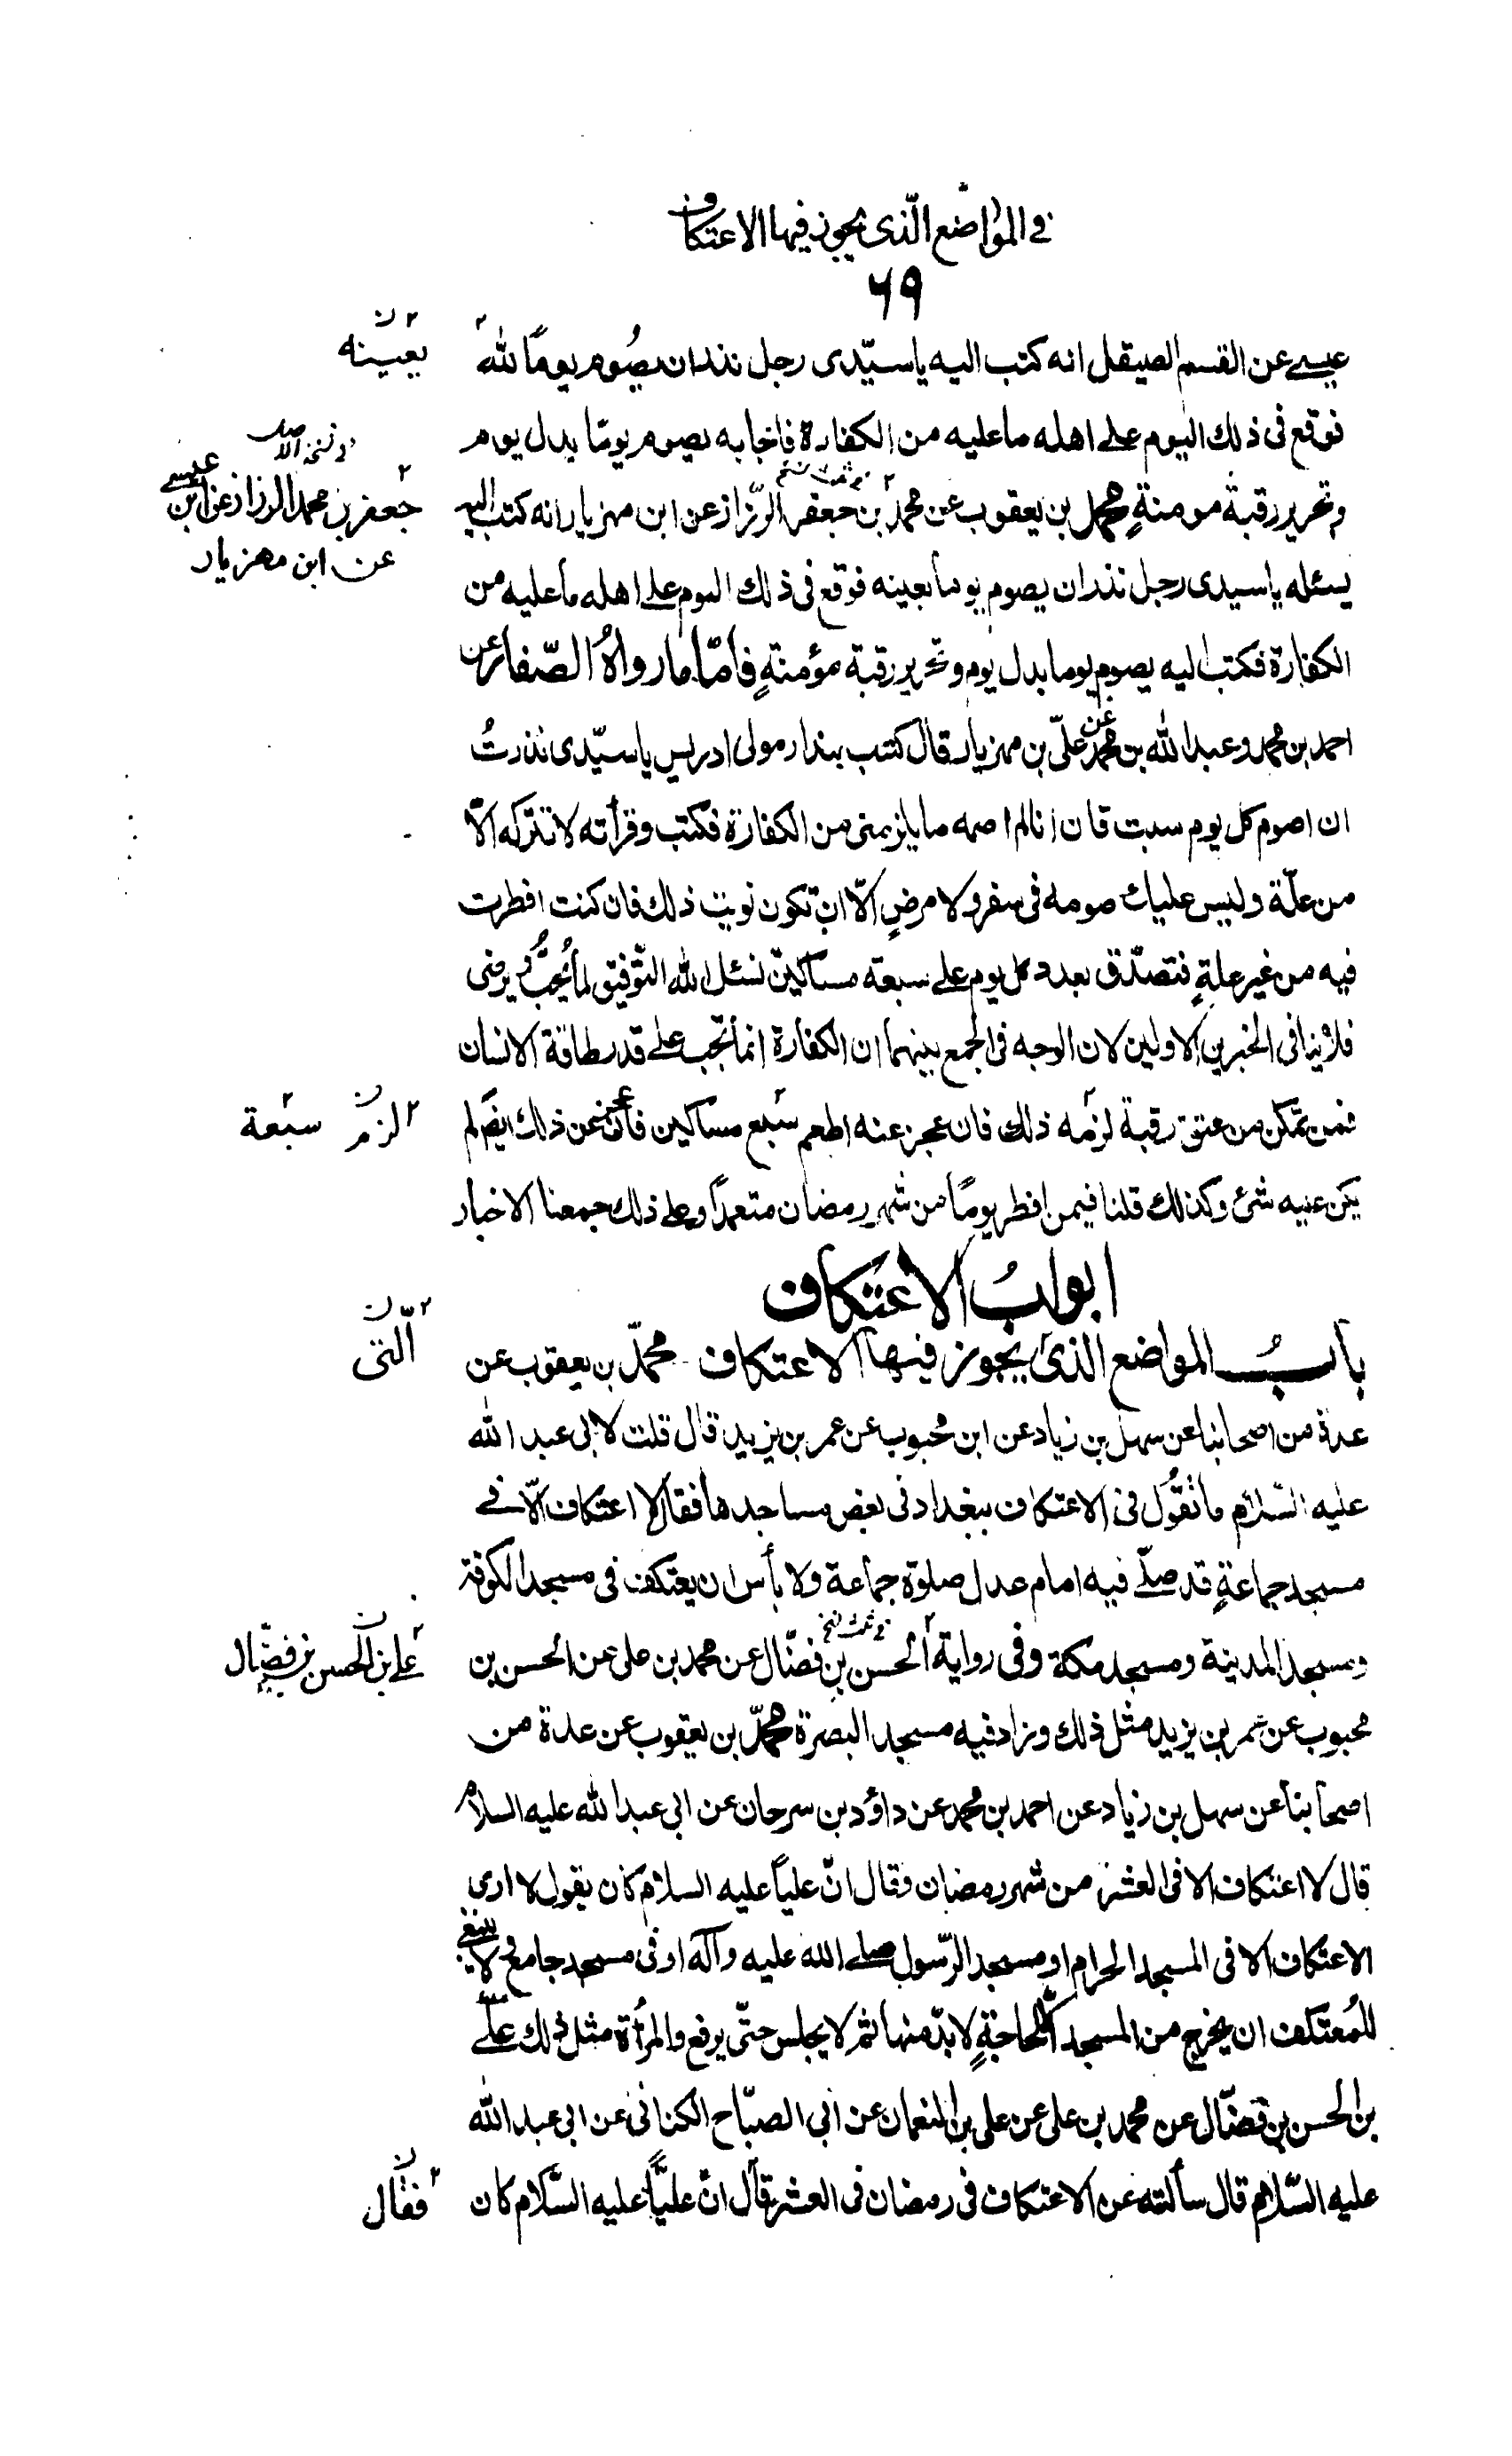 في المواضع الّذى يجوز فيها الاعتكاف
٦٩
عيسى عن القسم الصيقل انه كتب اليه يا سيّدى رجل نذر ان يصُوم يومًا لله
بعينه
فوقع فى ذلك اليوم على اهله ما عليه من الكفارة فاجابه يصوم يومًا بدل يوم
وتحرير رقبة مومنةٍ محمد بن يعقوب عن محمد بن جعفر الرّزاز عن ابن مهزيار انه كتب اليه
فى نسخة الاصل
جعفر بن محمد الرزاز عن ابن عيسى
عن ابن مهزيار
يسئله يا سيدى رجل نذر ان يصوم يوما بعينه فوقع فى ذلك اليوم على اهله ما عليه من
الكفارة فكتب اليه يصوم يوما بدل يوم وتحرير رقبة مؤمنةٍ فأمّا ما رواهُ الصّفار عن
احمد بن محمد وعبد الله بن محمد عن علىّ بن مهزيار قال كتب بندار مولى ادريس يا سيّدى نذرتُ
ان اصوم كل يوم سبت فان انا لم اصمه ما يلزمنى من الكفارة فكتب وقرأته لا تتركه الّا
من علّة وليس عليك صومه فى سفر ولا مرضٍ الّا ان تكون نويت ذلك فان كنت افطرت
فيه من غير علةٍ فتصدّق بعدد كل يوم على سبعة مساكين نسئل الله التّوفيق لما يُحبُّ ويرضى
فلا ينافى الخبرين الاولين لان الوجه فى الجمع بينهما ان الكفارة انما تجب على قدر طاقة الانسان
فمن تمكن من عتق رقبة لزمه ذلك فان عجز عنه اطعم سبع مساكين فان عجز عن ذلك ايضا لم
الزم سبعة
يكن عليه شئ وكذلك قلنا فيمن افطر يومًا من شهر رمضان متعمدًا وعلى ذلك جمعنا الاخبار
ابوابُ الاعتكاف
بابُ المواضع الّذى يجوز فيها الاعتكاف محمّد بن يعقوب عن
الّتى
عدة من اصحابنا عن سهل بن زياد عن ابن محبوب عن عمر بن يزيد قال قلت لابى عبد الله
عليه السّلام ما تقُول فى الاعتكاف ببغداد فى بعض مساجدها فقال لا اعتكاف الّا فى
مسجد جماعةٍ قد صلّى فيه امام عدل صلوة جماعة ولا بأس ان يعتكف فى مسجد الكوفة
ومسجد المدينة ومسجد مكة وفى رواية الحسن بن فضّال عن محمد بن على عن الحسن بن
على بن الحسن بن فضّال
محبوب عن عمر بن يزيد مثل ذلك وزاد فيه مسجد البصرة محمّد بن يعقوب عن عدة من
اصحابنا عن سهل بن زياد عن احمد بن محمد عن داؤد بن سرحان عن ابى عبد الله عليه السلام
قال لا اعتكاف الا فى العشر من شهر رمضان وقال انّ علياً عليه السلام كان يقول لا ارى
الاعتكاف الا فى المسجد الحرام او مسجد الرّسول صلى الله عليه وآله او فى مسجد جامع ولا ينبغى
للمُعتكف ان يخرج من المسجد الّا لحاجةٍ لا بدّ منها ثم لا يجلس حتّى يرفع والمرأة مثل ذلك علىّ
بن الحسن بن فضّال عن محمد بن على عن على بن النعمان عن ابى الصبّاح الكنانى عن ابى عبد الله
عليه السّلام قال سألته عن الاعتكاف فى رمضان فى العشر قال انّ عليًّا عليه السّلام كان
فقال